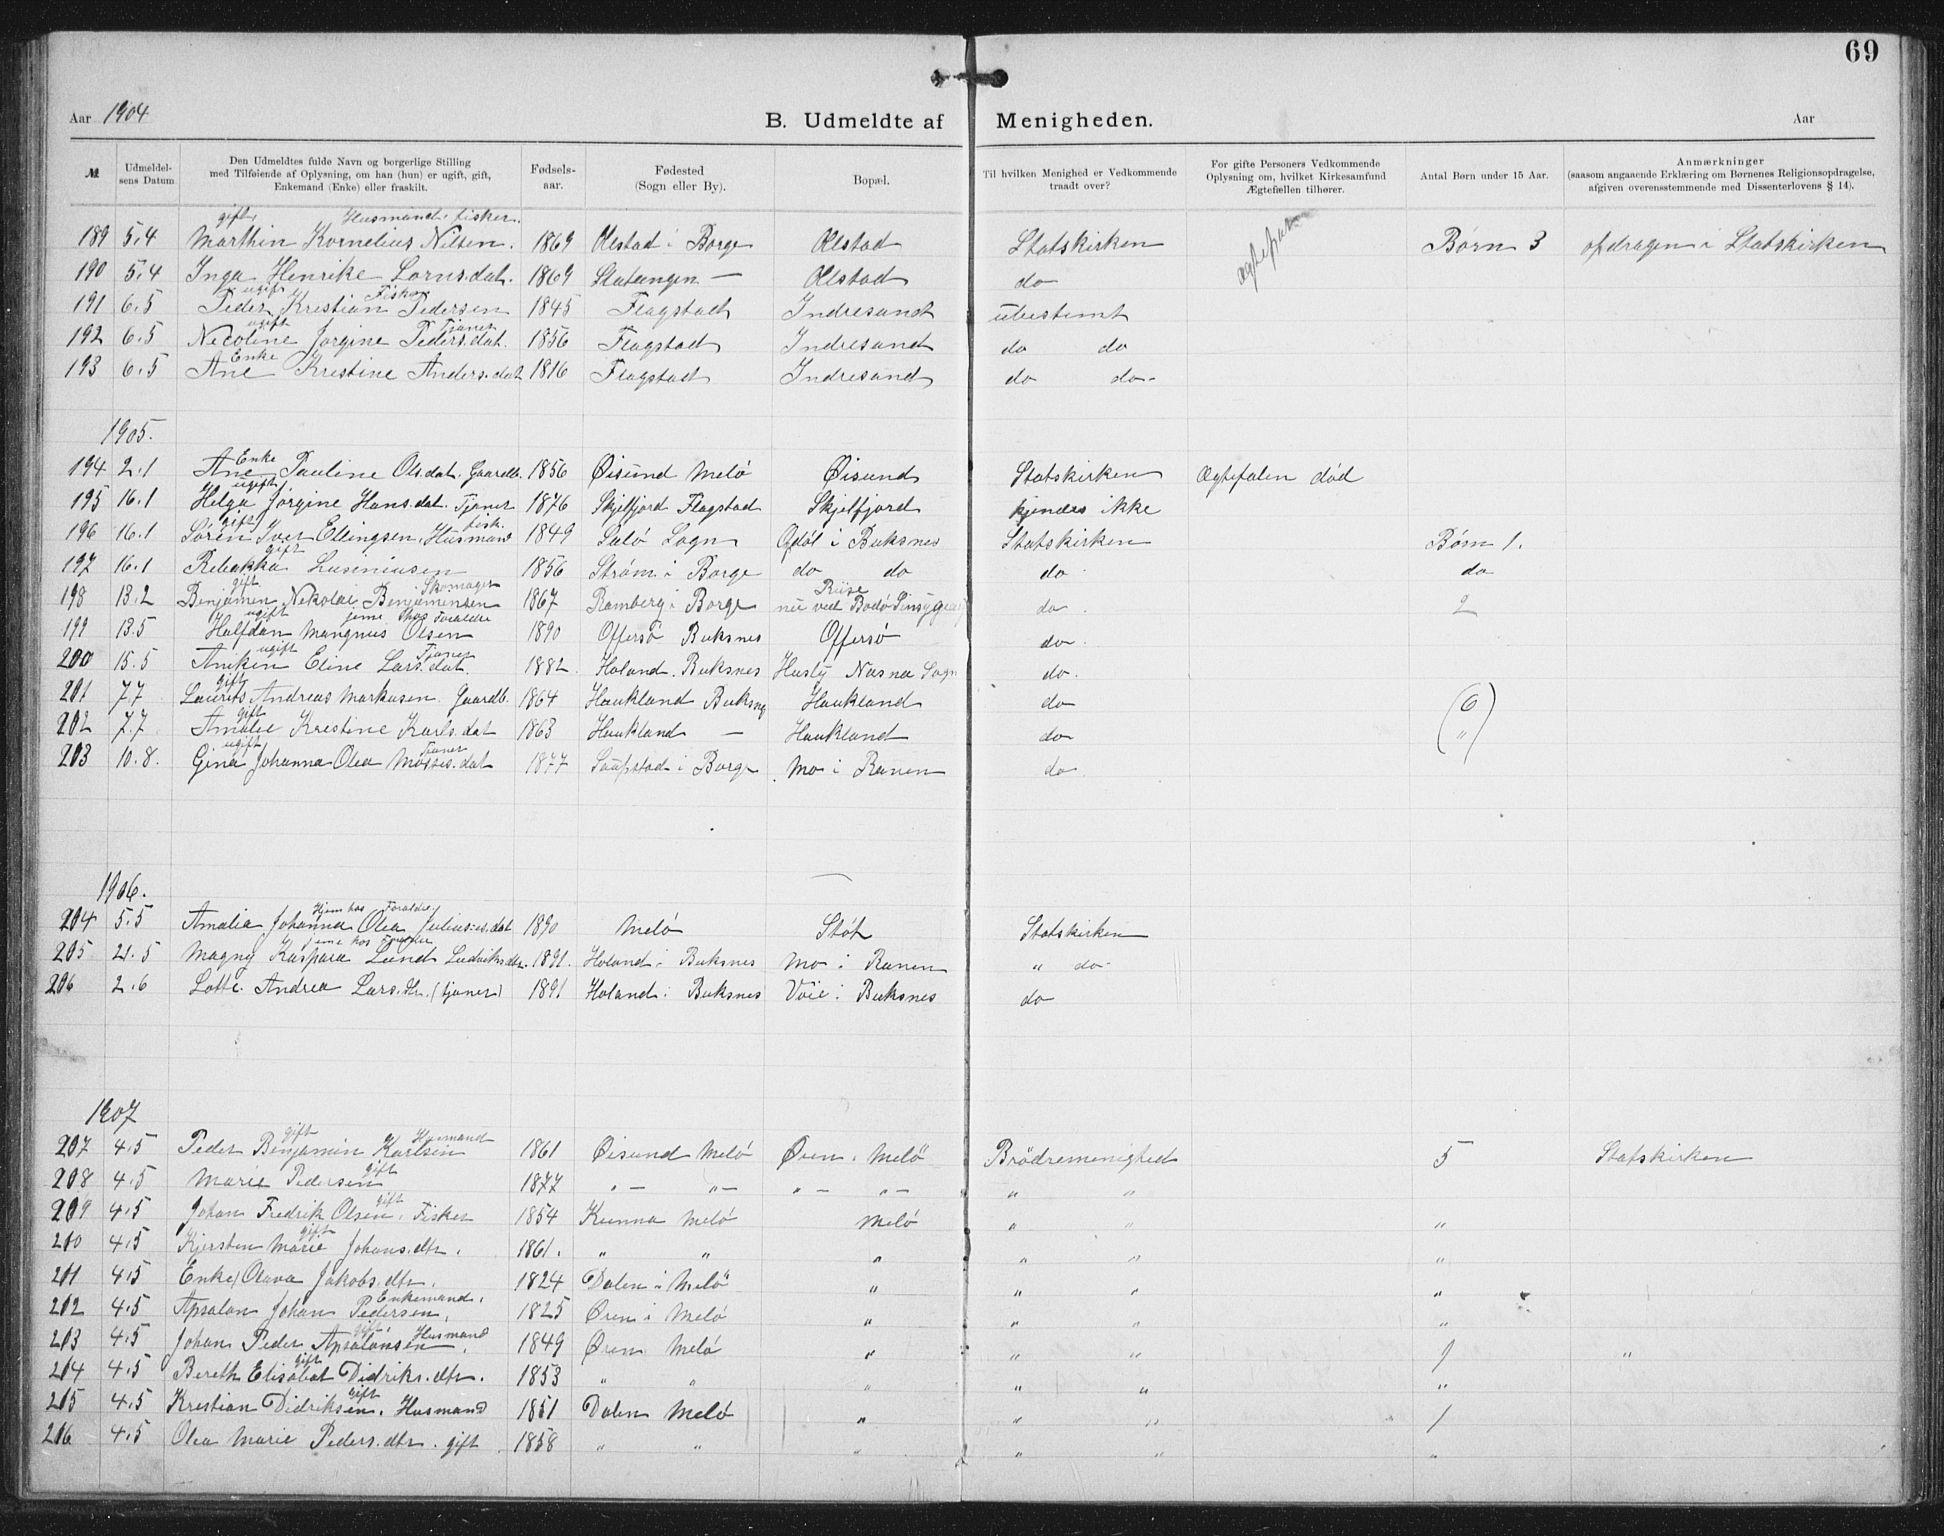 69
Aar 1904 B. Udmeldte af Menigheden. Aar
№ Udmeldelsens Datum Den Udmeldtes fulde Navn og borgerlige Stilling med Tilføiende af Oplysning, om han (hun) er ugift, gift, Enkemand (Enke) eller fraskilt. Fødselsaar. Fødested (Sogn eller By). Bopæl. Til hvilken Menighed er Vedkommende traadt over? For gifte Personers Vedkommende Oplysning om, hvilket Kirkesamfund Ægtefællen tilhører. Antal Børn under 15 Aar. Anmærkninger (saasom angaaende Erklæring om Børnenes Religionsopdragelse, afgiven overensstemmende med Dissenterlovens § 14).
gift, Husmand, fisker.
189 5.4 Marthin Kornelius Nilsen. 1869 Ølstad i Borge Ølstad Statskirken Børn 3 opdragen i Statskirken
190 5.4 Inga Henrike Lorns.dat. 1869 — Ølstad do
ugift Fisker
191 6.5 Peder Kristian Pedersen 1845 Flagstad Indresand ubestemt
ugift Tjener
192 6.5 Nicoline Jørgine Peders.dat. 1856 Flagstad Indresand do do
Enke
193 6.5 Ane Kristine Anders.dat 1816 Flagstad Indresand do do-
1905.
Enke
194 2.1 Ane Pauline Ols.dat. Gaardb. 1856 Øisund Melø Øisund Statskirken Ægtefalen død
ugift
195 16.1 Helga Jørgine Hans.dat. Tjener 1876 Skjelfjord Flagstad Skjelfjord kjendes ikke
gift fisk.
196 16.1 Sören Iver Ellingsen, Husmand 1849 Sogn i Buksnes Statskirken Børn 1.
gift
197 16.1 Rebakka Luseniusen 1856 Strøm i Borge do do do do
gift Skomager
198 13.2 Benjamen Nikolai Benjamensen 1867 Ramberg i Borge nu ved Bodø do 2
ugift jeme hos Foraldre
199 13.5 Halfdan Mangnus Olsen 1890 Offersø Buksnes Offersø do
ugift Tjener
200 15.5 Aniken Eline Lars.dat. 1882. Holand. Buksnes Husby Nasna Sogn do.
gift
201 7.7 Laurits Andreas Markusen. Gaardb. 1864 Haukland Buksnes Haukland do (6
gift
202 7.7 Amalie Kristine Karls.dat 1863 Haukland — Haukland do ")
ugift Tjener
203 10.8. Gina Johanna Olea Moses.dat 1877 Saupstad i Borge Mo i Ranen do
1906.
Hjem hos Foraldre
204 5.5 Amalia Johanna Olea Julius.dat 1890 Melö Støt Statskirken
jeme hos Foraldre
205 21.5 Magny Kaspara Lund Ludviks.dtr. 1891. Holand i Buksnes Mo i Ranen " do
206 2.6 Lotte Andrea Lars.dtr. (tjener) 1891 Holand i Buksnes Voie i Buksnes do
1907
gift Husmand
207 4.5 Peder Benjamin Karlsen 1861 Øisund Melö Øren i Melö Brödremenighed 5 Statskirken
gift
208 4.5 Marie Pedersen 1877 "- "- "- "- " "
gift
209 4.5 Johan Fredrik Olsen, Fisker 1854 Kunna Melö Melö " " "
gift
210 4.5 Kjersten Marie Johans.dtr. 1861. " " " " " "
201 4.5 Enke) Olava Jakobs.dtr. 1824 Dalen i Melö " " " "
Enkemand.
202 4.5 Apsalon Johan Pedersen, 1825 Øren i Melö " " " "
gift Husmand
203 4.5 Johan Peder Apsalonsen 1849 Øren Melö " " " 1 "
gift
204 4.5 Bereth Elisabet Didriks.dtr. 1853 " " " " " "
gift
205 4.5 Krestian Didriksen, Husmand 1851 Dalen Melö " " " 1
206 4.5 Olea Marie Peders.dtr. gift 1858 " " " " " "